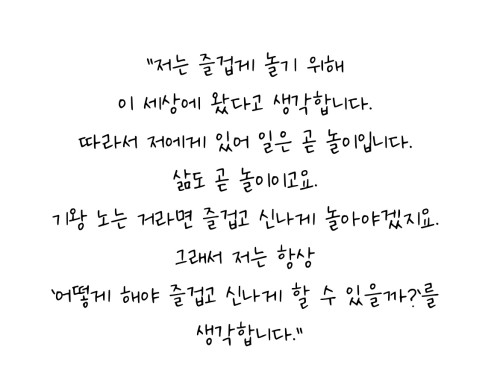 "저는 즐겁게 놀기 위해
이 세상에 왔다고 생각합니다.
따라서 저에게 있어 일은 곧 놀이입니다.
삶도 곧 놀이이고요.
기왕 노는 거라면 즐겁고 신나게 놀아야겠지요.
그래서 저는 항상
'어떻게 해야 즐겁고 신나게 할 수 있을까?'를
생각합니다."